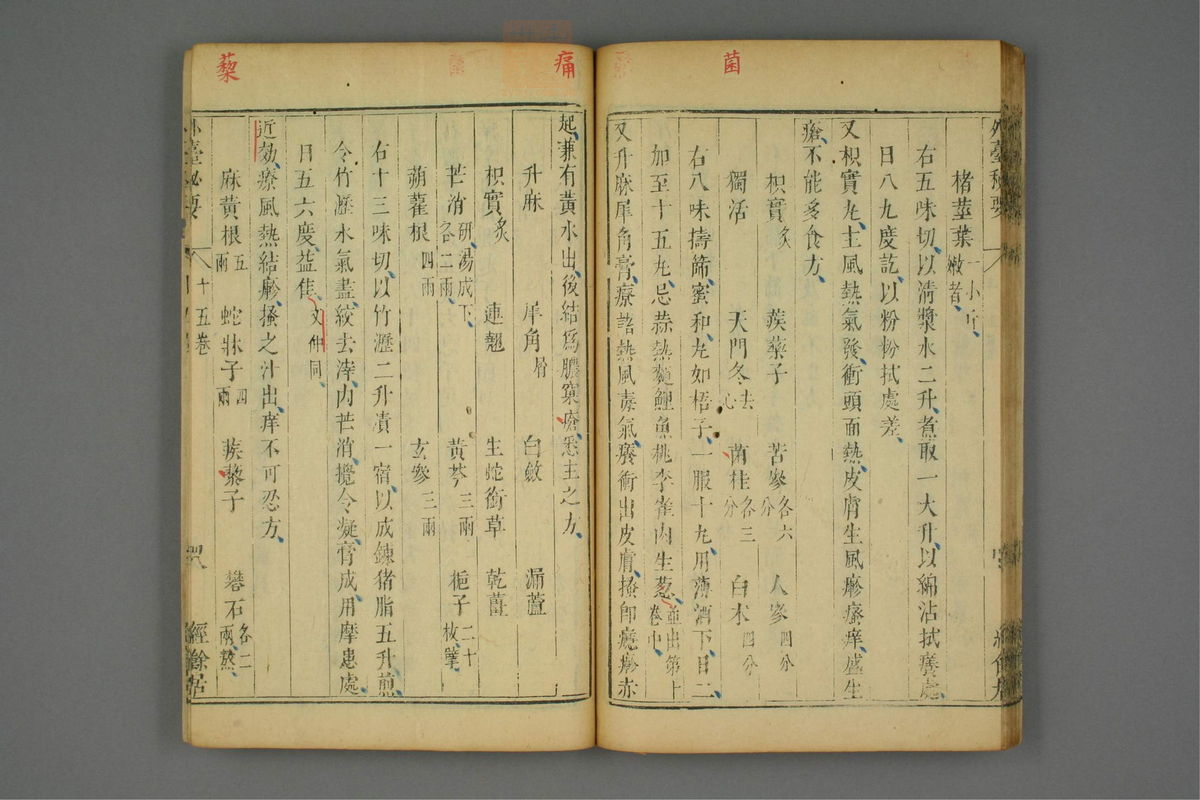 菌
楮莖葉一小斤嫩者
右五味切以清漿水二升煮取一大升以綿沾拭癢處
日八九度訖以粉粉拭處差
又枳實丸主風熱氣發衝頭面熱皮膚生風疹瘙痒盛生
瘡不能多食方
枳實炙 蒺藜子 苦參各六分 人參四分
獨活 天門冬去心 菌桂各三分 白朮四分
右八味擣篩蜜和丸如梧子一服十丸用薄酒下日二
加至十五丸忌蒜熱麵鯉魚桃李雀肉生葱並出第十卷中
又升麻犀角膏療諸熱風毒氣癢衝出皮膚搔卽癮疹赤
痛
藜
起兼有黃水出後結爲膿窠瘡悉主之方
升麻 犀角屑 白斂 漏蘆
枳實炙 連翹 生蛇銜草 乾薑
芒消研湯成下各二兩 黃芩三兩 梔子二十枚擘
蒴藋根四兩 玄參三兩
右十三味切以竹瀝二升漬一宿以成鍊猪脂五升煎
令竹瀝水氣盡絞去滓內芒消攪令凝膏成用摩患處
日五六度益佳文仲同
近効療風熱結疹搔之汁出痒不可忍方
麻黃根五兩 蛇牀子四兩 蒺藜子 礬石各二兩熬
外臺秘要 十五卷 經餘居